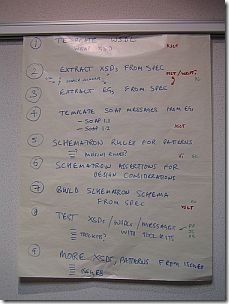 1 TEMPLATE WSDL
WHAT XSD? XSLT
2 EXTRACT XSDs FROM SPEC
3 EXTRACT EGs FROM SPEC
4 TEMPLATE SOAP MESSAGES FROM EGs
- SOAP 1.1
- SOAP 1.2 XSLT
5 SCHEMATRON RULES FOR PATTERNS
6 SCHEMATRON ASSERTIONS FOR
DESIGN CONSIDERATIONS
7 BUILD SCHEMATRON SCHEMA
FROM SPEC XSLT
8 TEST XSDs/WSDLs/MESSAGES
TOOLKITS? WITH TOOLKITS
9 MORE XSDs/PATTERNS FROM ISSUES
ISSUES